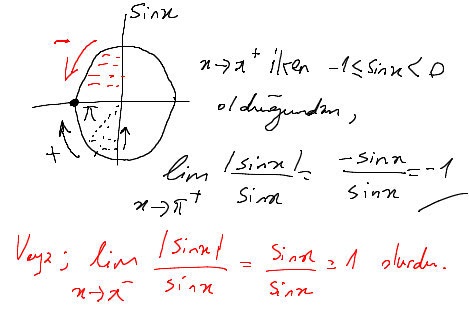 sinx
-
π
+
x→π⁺ iken -1≤sinx<0
olduğundan,
lim x→π⁺ |sinx|/sinx = -sinx/sinx = -1
Veya; lim x→π⁻ |sinx|/sinx = sinx/sinx = 1 olurdu.